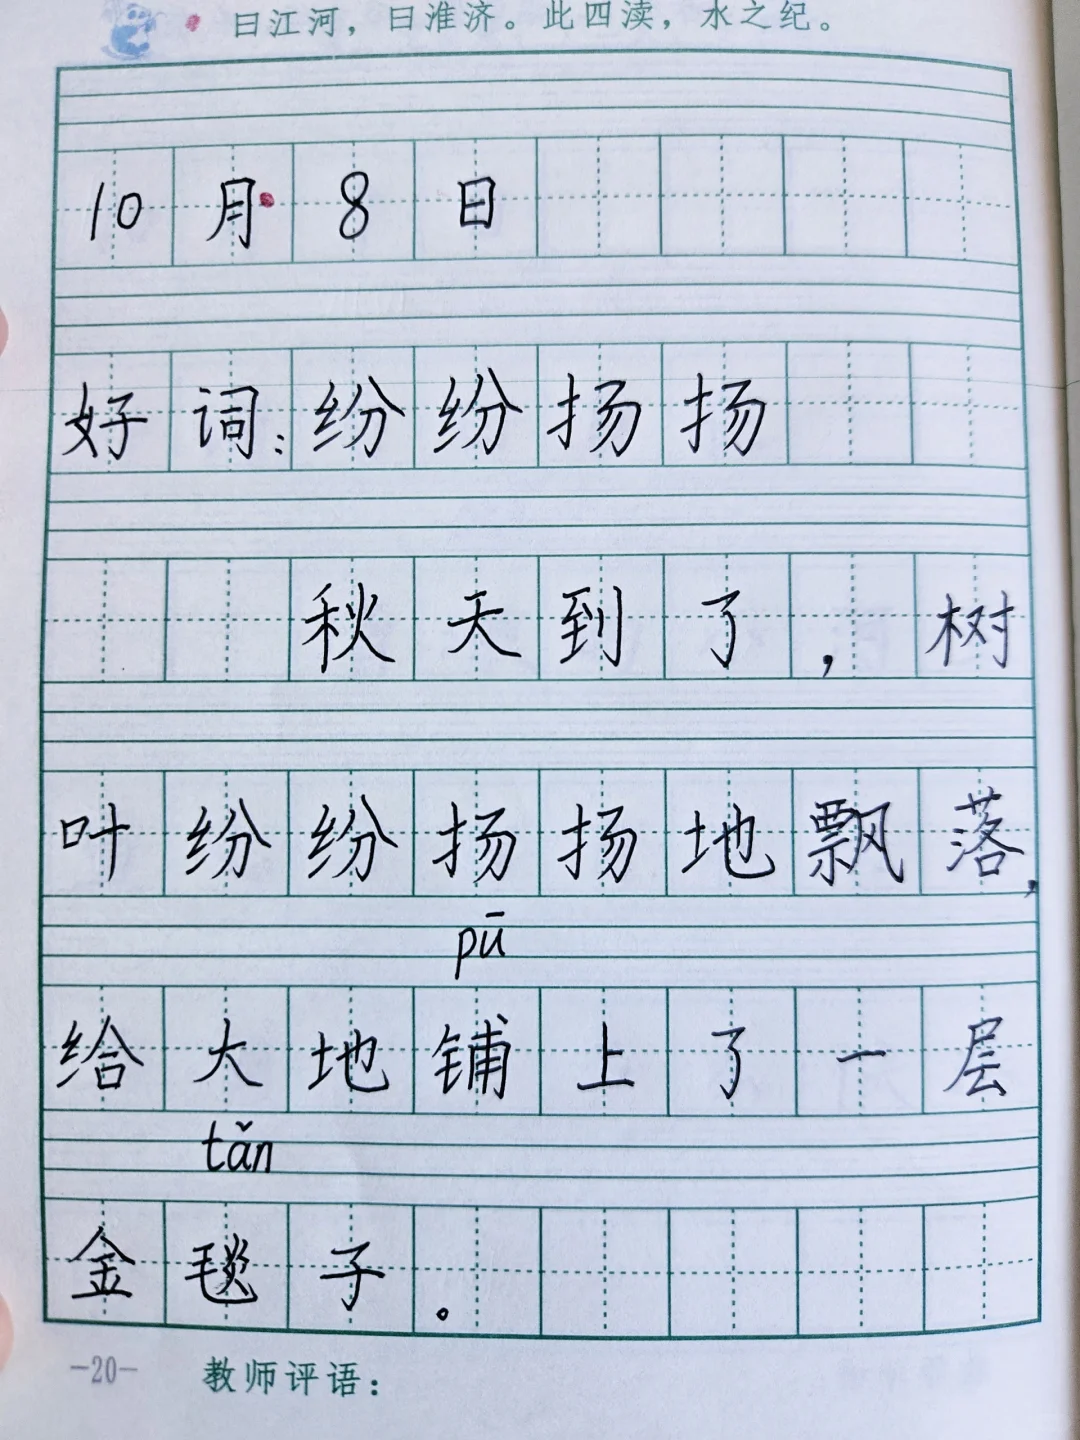 曰江河，曰淮济。此四渎，水之纪。
10月8日
好词：纷纷扬扬
秋天到了，树
叶纷纷扬扬地飘落，
pū
给大地铺上了一层
tǎn
金毯子。
-20- 教师评语：